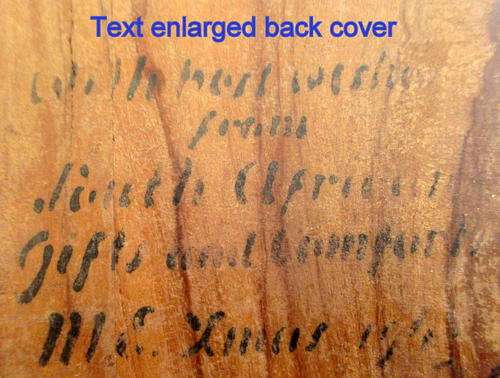 Text enlarged back cover
With best wishes
from
South African
Gifts and Comforts
M.E. Xmas